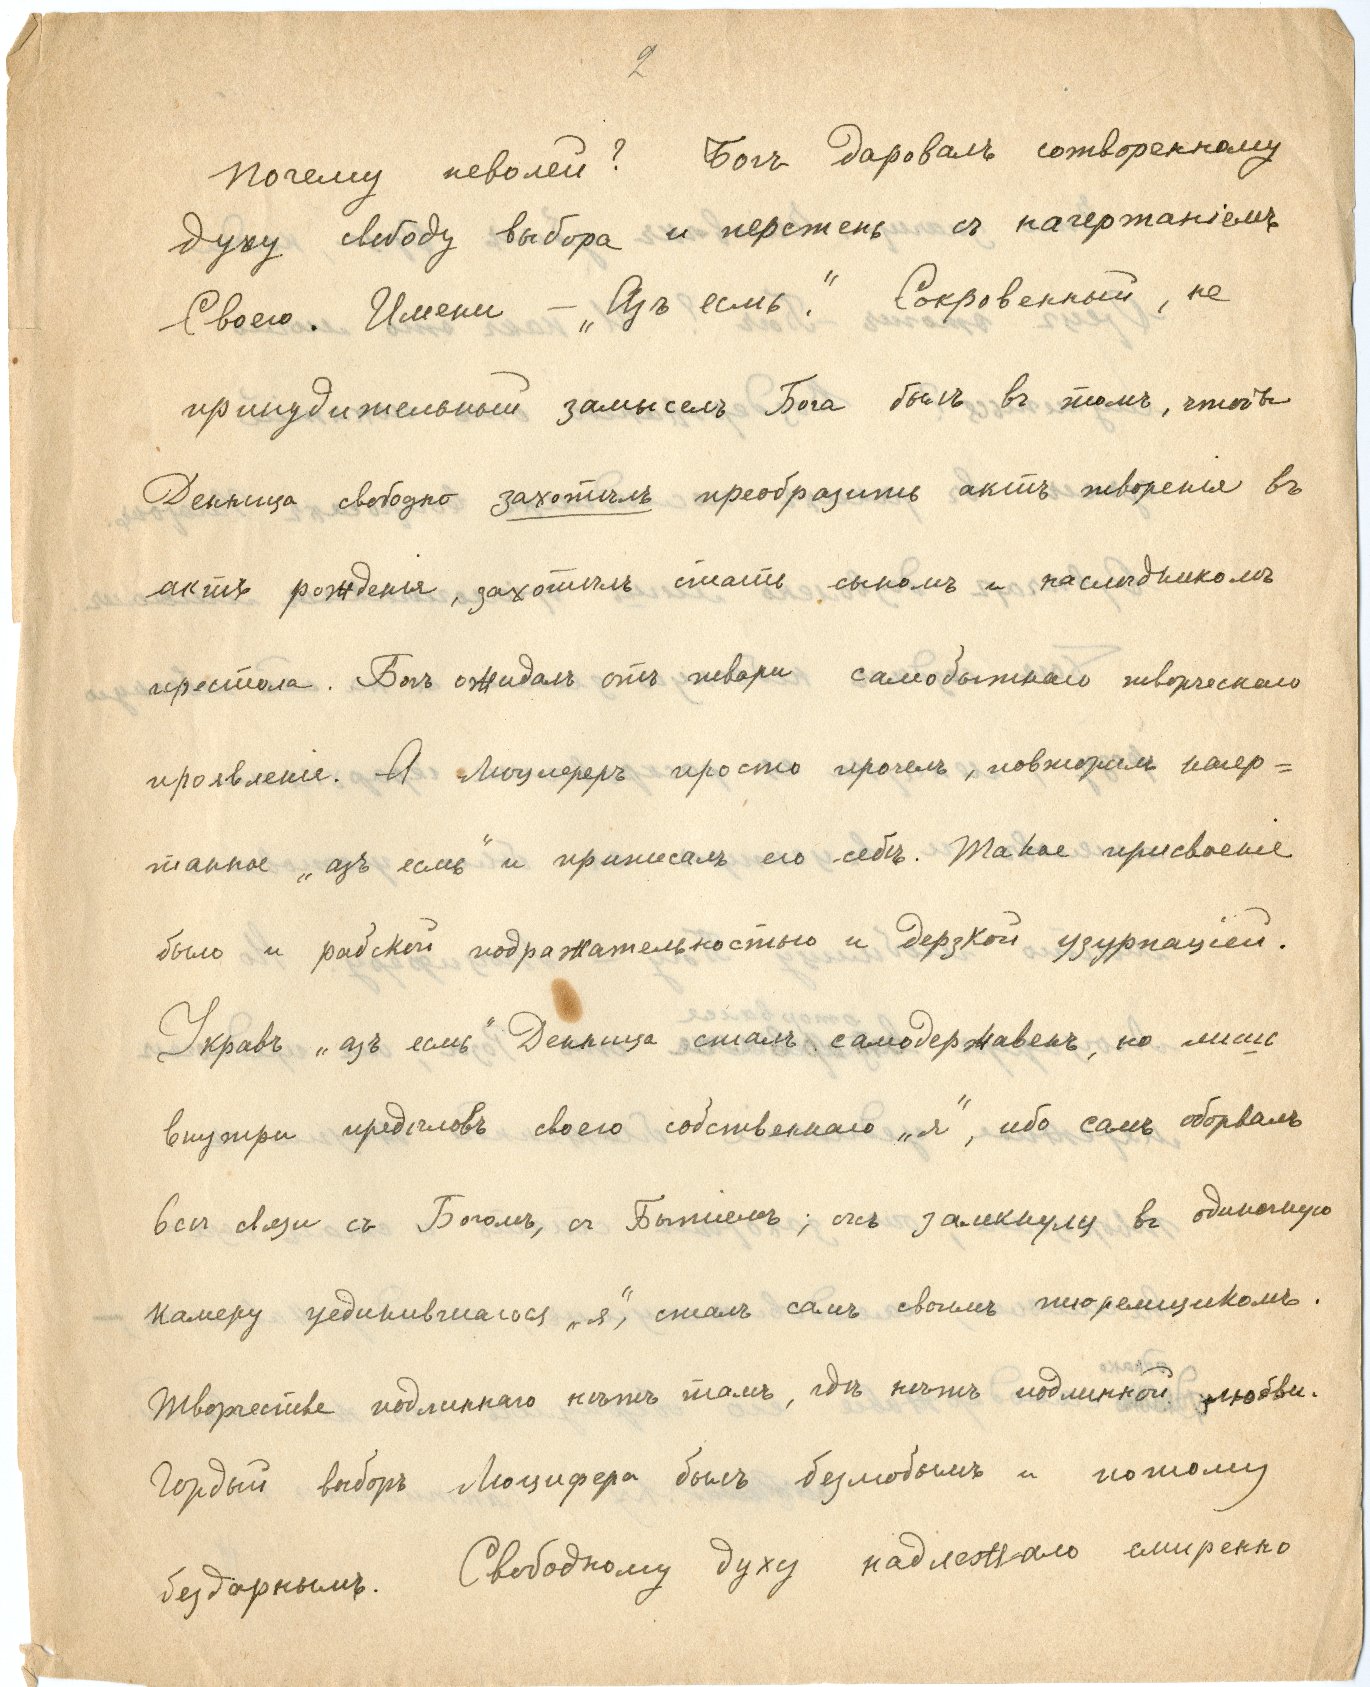 2
Почему неволей? Богъ даровалъ сотворенному
духу свободу выбора и перстень съ начертаніемъ
Своего Имени – „Азъ есмь". Сокровенный, не
принудительный замыселъ Бога былъ въ томъ, чтобъ
Денница свободно захотѣлъ преобразить актъ творенія въ
актъ рожденія, захотѣлъ стать сыномъ и наслѣдникомъ
престола. Богъ ожидалъ отъ твари самобытнаго творческаго
проявленія. А Люциферъ просто прочелъ, повторилъ начер=
танное „азъ есмь" и приписалъ его себѣ. Такое присвоеніе
было и рабской подражательностью и дерзкой узурпаціей.
Укравъ „азъ есмь" Денница сталъ самодержавенъ, но лишь
внутри предѣловъ своего собственнаго „я", ибо самъ оборвалъ
всѣ связи съ Богомъ, съ Бытіемъ; онъ замкнулъ въ одиночную
камеру уединившагося „я", сталъ самъ своимъ тюремщикомъ.
Творчества подлиннаго нѣтъ тамъ, гдѣ нѣтъ подлинной любви.
Гордый выборъ Люцифера былъ безлюбымъ и потому
бездарнымъ. Свободному духу надлежало смиренно